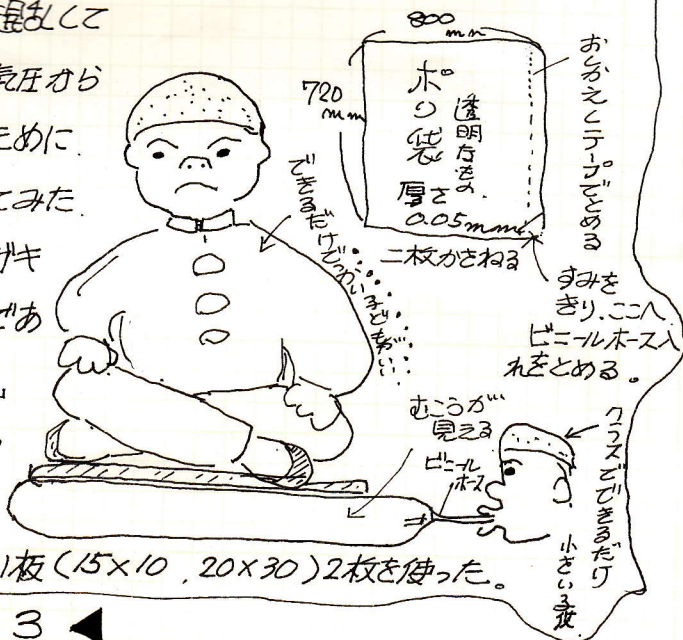 混乱して
気圧から
ために
てみた
ザキ
であ
800
mm
720
mm
ポリ袋
透明なもの
厚さ
0.05mm
二枚かさねる
おりかえしテープでとめる
すみを
きり、ここへ
ビニールホース入
れをとめる。
できるだけでっかい子どもがいい
むこうが
見える
ビニール
ホース
クラスでできるだけ
小さい子彼
板(15×10, 20×30)2枚を使った。
3 ◀